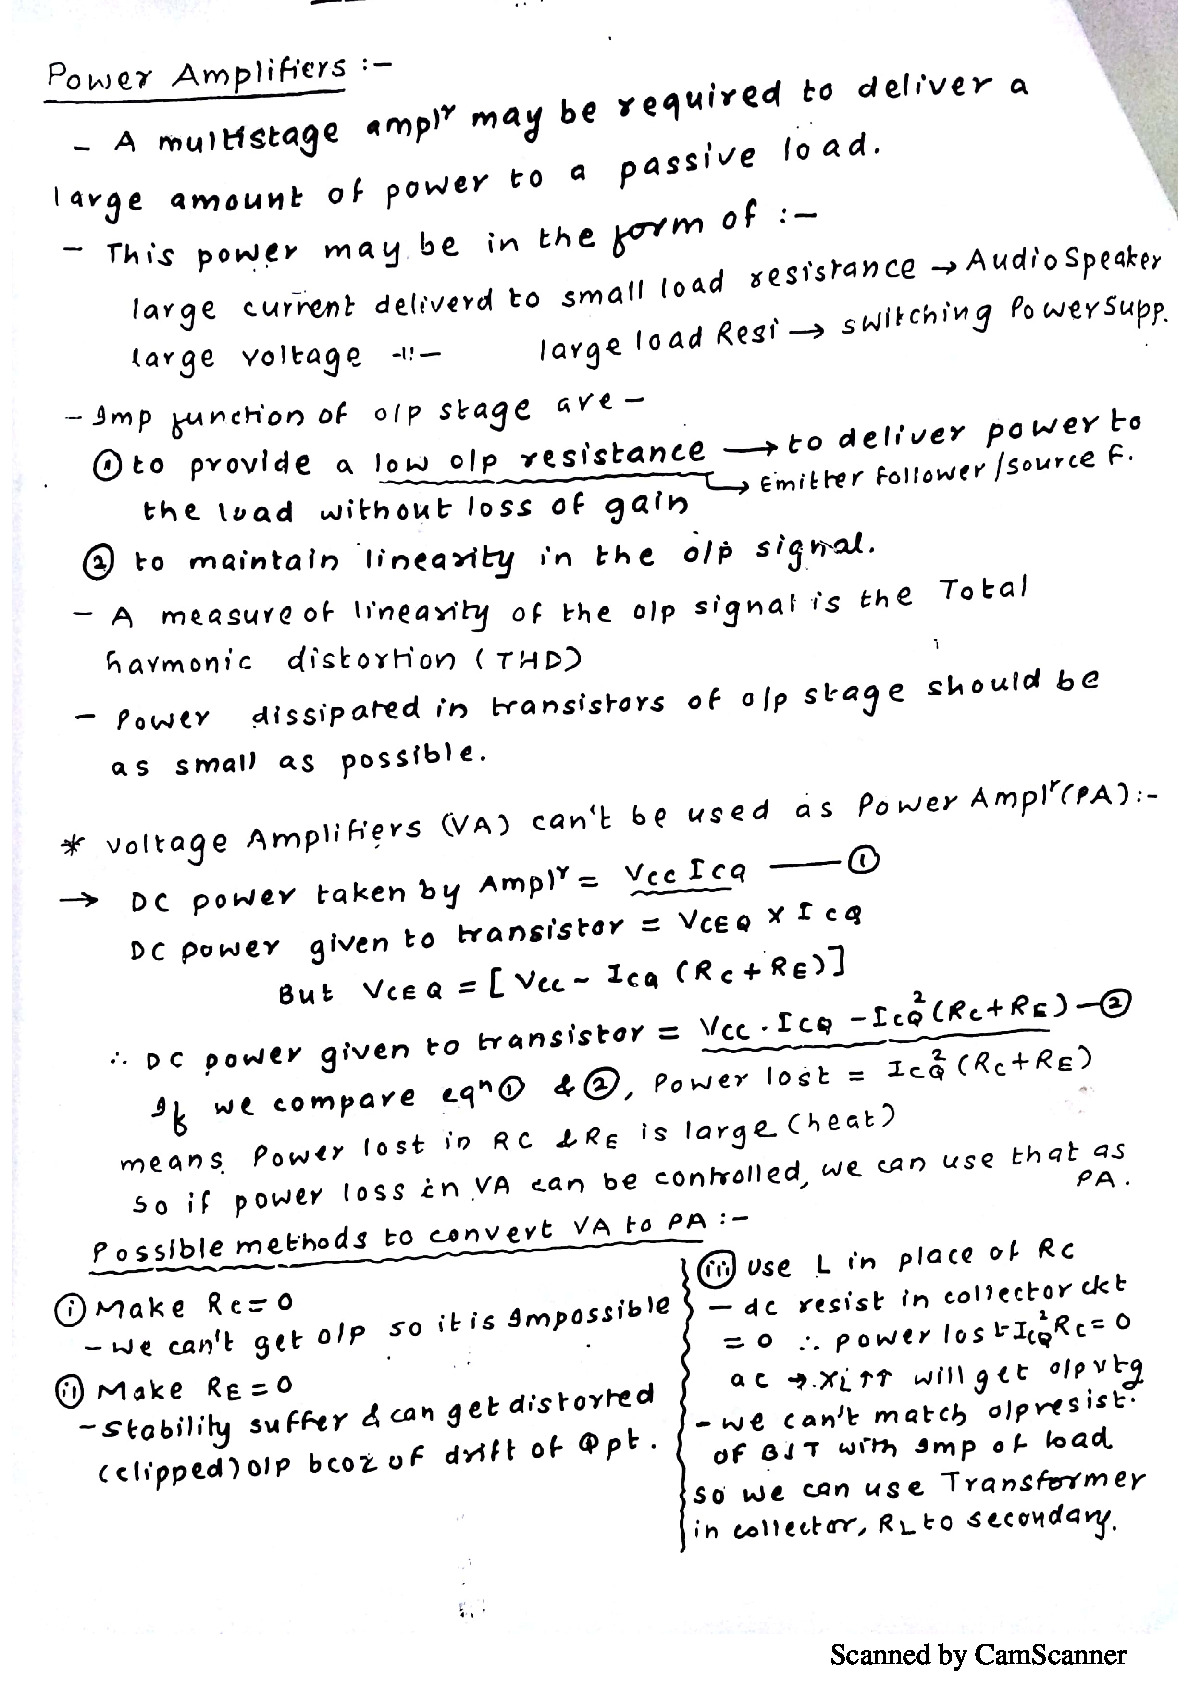 Power Amplifiers :-
- A multistage amplr may be required to deliver a
large amount of power to a passive load.
- This power may be in the form of :-
large current deliverd to small load resistance → Audio Speaker
large voltage -11- large load Resi → switching Power Supp.
- Imp function of o/p stage are -
① to provide a low o/p resistance → to deliver power to
↳ Emitter Follower / Source F.
the load without loss of gain
② to maintain linearity in the o/p signal.
- A measure of linearity of the o/p signal is the Total
harmonic distortion (THD)
- Power dissipated in transistors of o/p stage should be
as small as possible.
* Voltage Amplifiers (VA) can't be used as Power Amplr (PA) :-
→ DC power taken by Amplr = Vcc ICQ — ①
DC power given to transistor = VCEQ × ICQ
But VCEQ = [Vcc - ICQ (RC + RE)]
∴ DC power given to transistor = Vcc . ICQ - ICQ² (RC + RE) - ②
If we compare eqn ① & ②, Power lost = ICQ² (RC + RE)
means Power lost in RC & RE is large (heat)
So if power loss in VA can be controlled, we can use that as
PA.
Possible methods to convert VA to PA :-
ⓘ Make RC = 0
- we can't get o/p so it is Impossible
(ii) Make RE = 0
- Stability suffer & can get distorted
(clipped) o/p bcoz of drift of Q pt.
(iii) Use L in place of RC
- dc resist in collector ckt
= 0 ∴ power lost ICQ² RC = 0
ac → XL ↑↑ will get o/p vtg
- we can't match o/p resist.
of BJT with Imp of load
so we can use Transformer
in collector, RL to secondary.
Scanned by CamScanner